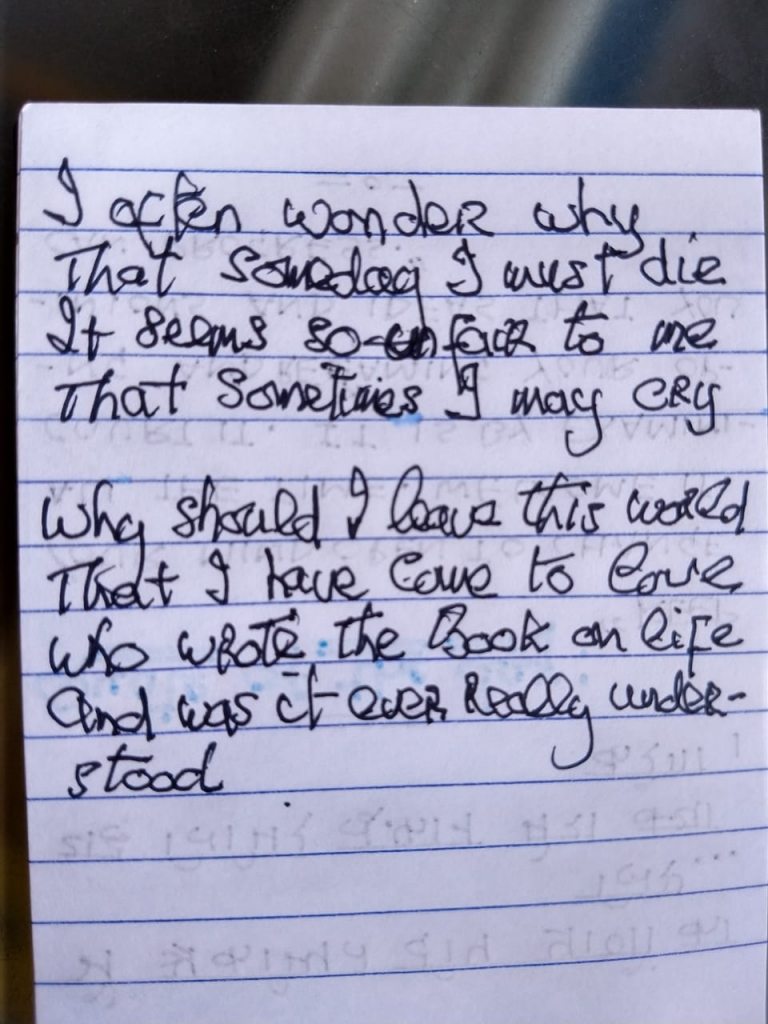 I often wonder why
That someday I must die
It seems so unfair to me
That Sometimes I may cry
Why should I leave this world
That I have come to love
Who wrote the Book on life
And was it ever Really under-
stood